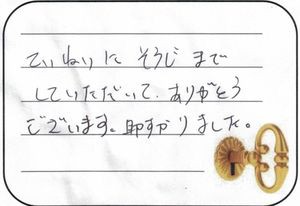 ていねいに そうじまで
していただいて、ありがとう
ございます。助かりました。